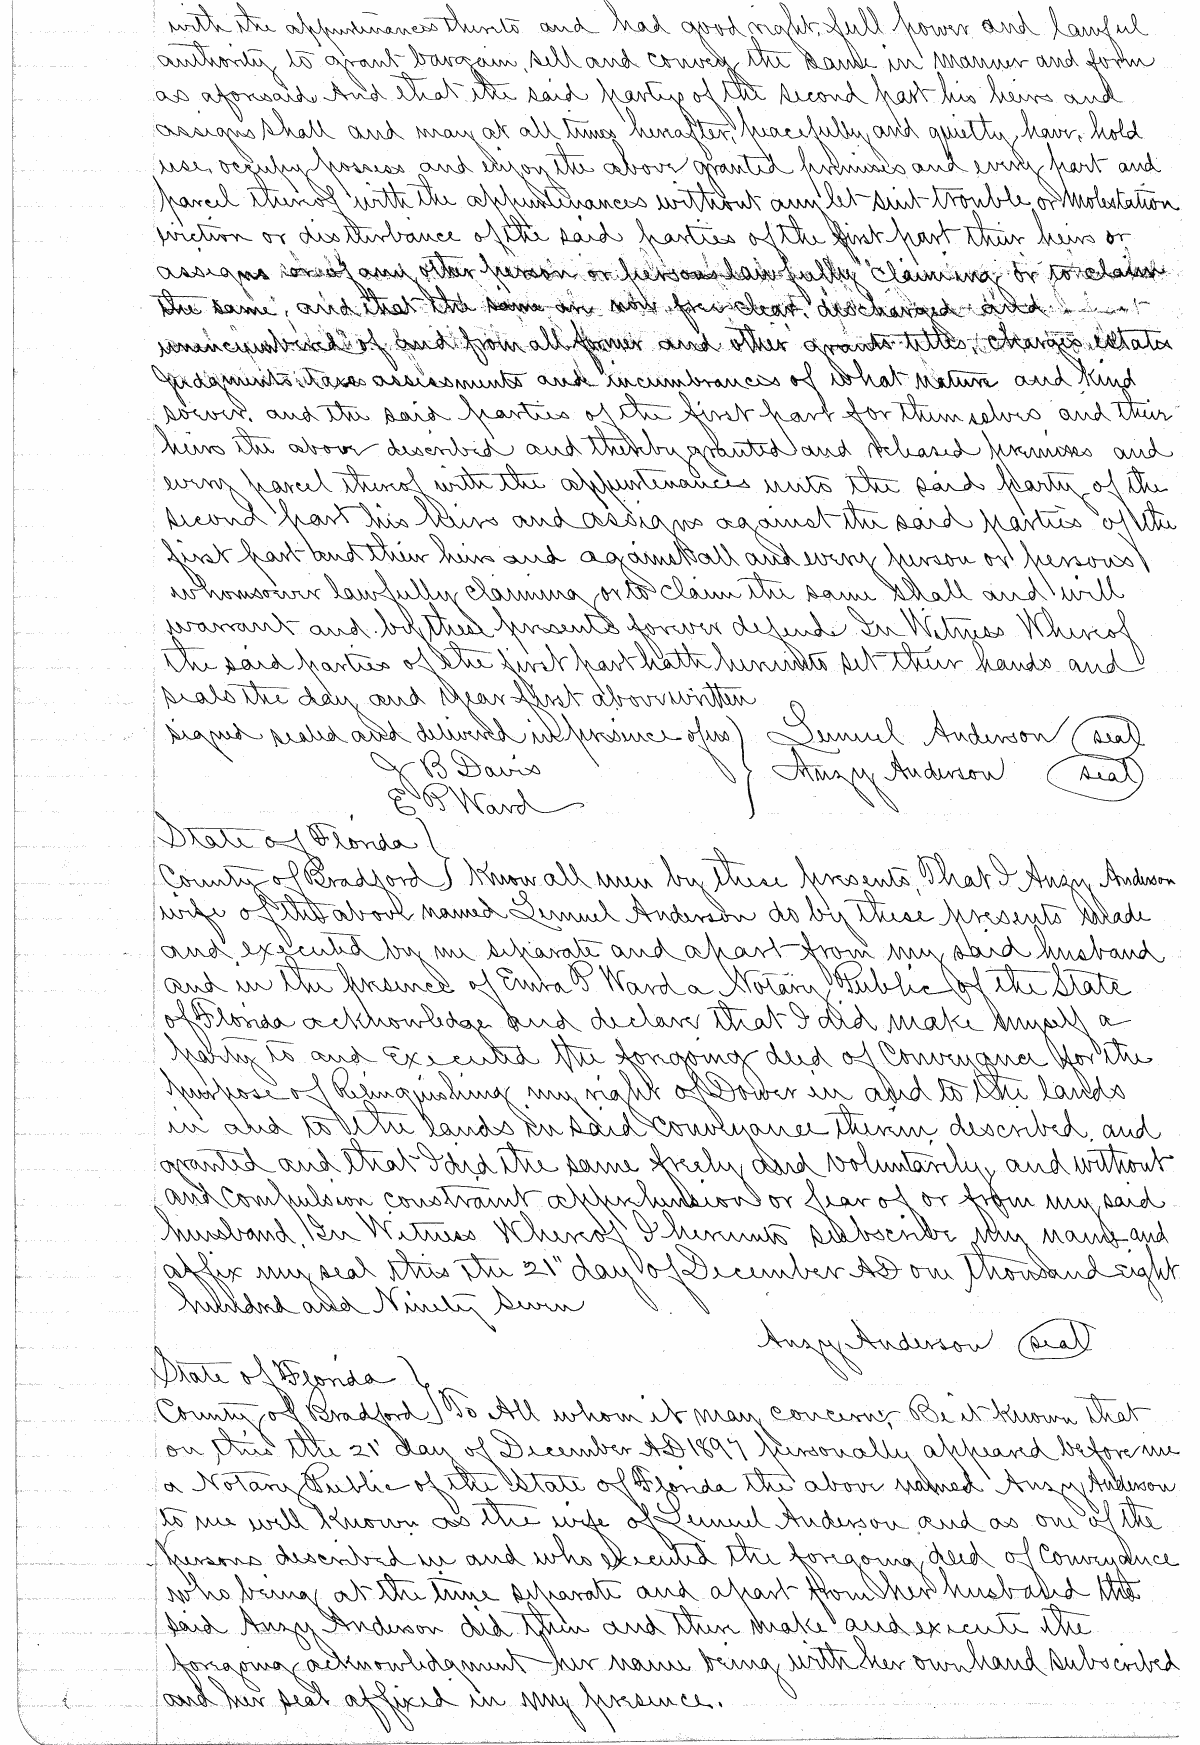 with the appurtenances thereto and had good right, full power and lawful
authority to grant bargain, sell and convey the same in manner and form
as aforesaid And that the said party of the second part his heirs and
assigns shall and may at all times hereafter, peacefully and quietly have, hold
use, occupy possess and enjoy the above granted premises and every part and
parcel thereof with the appurtenances without any let suit trouble or Molestation
eviction or disturbance of the said parties of the first part their heirs or
assigns or of any other person or persons lawfully claiming or to claim
the same, and that the same are now free clear, discharged and
unancumbered of and from all former and other grants titles, charges, estates
Judgments, taxes assessments and incumbrances of what nature and kind
soever. and the said parties of the first part for themselves and their
heirs the above described and thereby granted and released premises and
every parcel thereof with the appurtenances unto the said party of the
second part his heirs and assigns against the said parties of the
first part and their heirs and against all and every person or persons
whomsoever lawfully claiming or to claim the same shall and will
warrant and by these presents forever defend. In Witness Whereof
the said parties of the first part hath hereunto set their hands and
seals the day and year first above written
signed sealed and delivered in presence of us ) Lemuel Anderson (seal)
J B Davis } Anzy Anderson (seal)
E P Ward
State of Florida }
County of Bradford ) Know all men by these presents, That I Anzy Anderson
wife of the above named Lemuel Anderson do by these presents made
and executed by me separate and apart from my said husband
and in the presence of Emra P Ward a Notary Public of the State
of Florida acknowledge and declare that I did make myself a
party to and Executed the foregoing deed of Conveyance for the
purpose of Relinquishing my right of Dower in and to the lands
in and to the lands in said conveyance therein described, and
granted and that I did the same freely and voluntarily, and without
and compulsion constraint apprehension or fear of or from my said
husband, In Witness Whereof I hereunto subscribe my name and
affix my seal this the 21" day of December AD one thousand eight
hundred and Ninety Seven
Anzy Anderson (seal)
State of Florida }
County of Bradford ) To All whom it may concern, Be it Known that
on this the 21' day of December AD 1897 personally appeared before me
a Notary Public of the State of Florida the above named Anzy Anderson
to me well Known as the wife of Lemuel Anderson and as one of the
persons described in and who executed the foregoing deed of Conveyance
who being at the time separate and apart from her husband the
said Anzy Anderson did then and there make and execute the
foregoing acknowledgment her name being with her own hand subscribed
and her seal affixed in my presence.